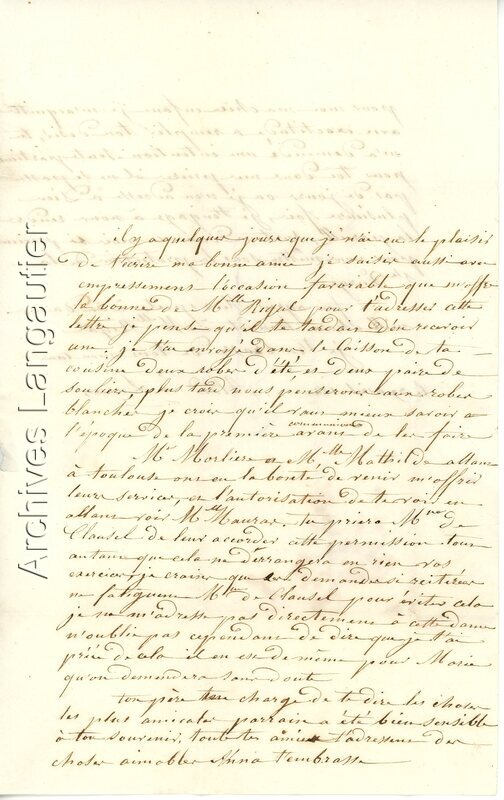 il y a quelques jours que je n'ai eu le plaisir
de t'écrire ma bonne amie je saisis aussi avec
empressement l'occasion favorable que m'offre
la bonne de Mlle Rigal pour t'adresser cette
lettre je pense qu'il te tardait d'en recevoir
une. je t'ai envoyé dans le caisson de ta
cousine deux robes d'été et deux paire de
souliers, plus tard nous penserons aux robes
blanches je crois qu'il vaut mieux savoir a
l'époque de la première communion avant de les faire
Mr Morliere et Mlle Mathilde allant
à toulouse ont eu la bonté de venir m'offrir
leurs services, et l'autorisation de te voir en
allant voir Mlle Mauzas. tu priera Mme de
Clausel de leur accorder cette permission tout
autant que cela ne dérrangera en rien vos
exercices, je crains que demande si réitérée
ne fatiguent Mme de Clausel pour éviter cela
je ne m'adresse pas directement à cette dame
n'oublie pas cependant de dire que je t'ai
priée de cela il en est de même pour Marie
qu'on demandera sans doute
ton père me charge de te dire les choses
les plus amicales parrain a été bien sensible
à ton souvenir, toutes tes amies t'adressent des
choses aimables Anna t'embrasse
Archives Langautier